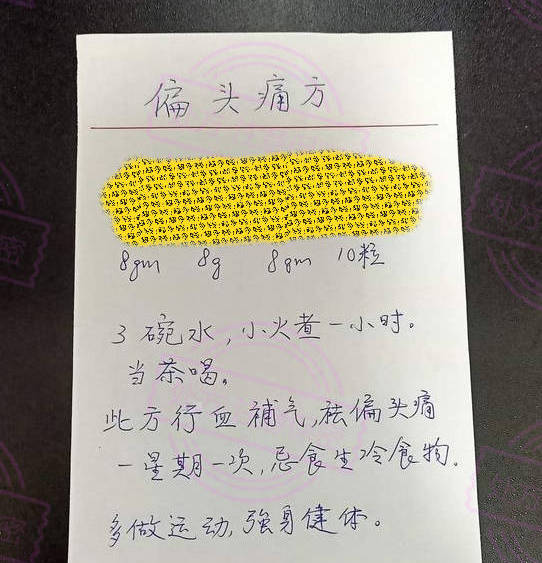 偏头痛方
8gm 8g 8gm 10粒
3碗水,小火煮一小时。
当茶喝。
此方行血補气,祛偏头痛
一星期一次,忌食生冷食物。
多做运动,強身健体。